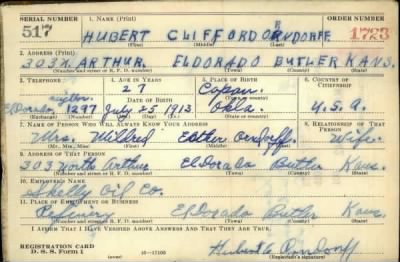 SERIAL NUMBER 1. NAME (Print) ORDER NUMBER
517 HUBERT CLIFFORD ORNDORFF 1723
(First) (Middle) (Last)
2. ADDRESS (Print)
303 N. ARTHUR. ELDORADO BUTLER KANS.
(Number and street or R. F. D. number) (Town) (County) (State)
3. TELEPHONE 4. AGE IN YEARS 5. PLACE OF BIRTH 6. COUNTRY OF CITIZENSHIP
27 Copan
DATE OF BIRTH (Town or county)
1297 July 25 1913 Okla. U.S.A.
(Exchange) (Number) (Mo.) (Day) (Yr.) (State or country)
7. NAME OF PERSON WHO WILL ALWAYS KNOW YOUR ADDRESS 8. RELATIONSHIP OF THAT PERSON
Mrs. Mildred Esther Orndorff Wife
(Mr., Mrs., Miss) (First) (Middle) (Last)
9. ADDRESS OF THAT PERSON
303 North Arthur ElDorado Butler Kans.
(Number and street or R. F. D. number) (Town) (County) (State)
10. EMPLOYER'S NAME
Skelly Oil Co.
11. PLACE OF EMPLOYMENT OR BUSINESS
Refinery ElDorado Butler Kans.
(Number and street or R. F. D. number) (Town) (County) (State)
I AFFIRM THAT I HAVE VERIFIED ABOVE ANSWERS AND THAT THEY ARE TRUE.
REGISTRATION CARD
D. S. S. Form 1 16-17105 Hubert C Orndorff
(over) (Registrant's signature)